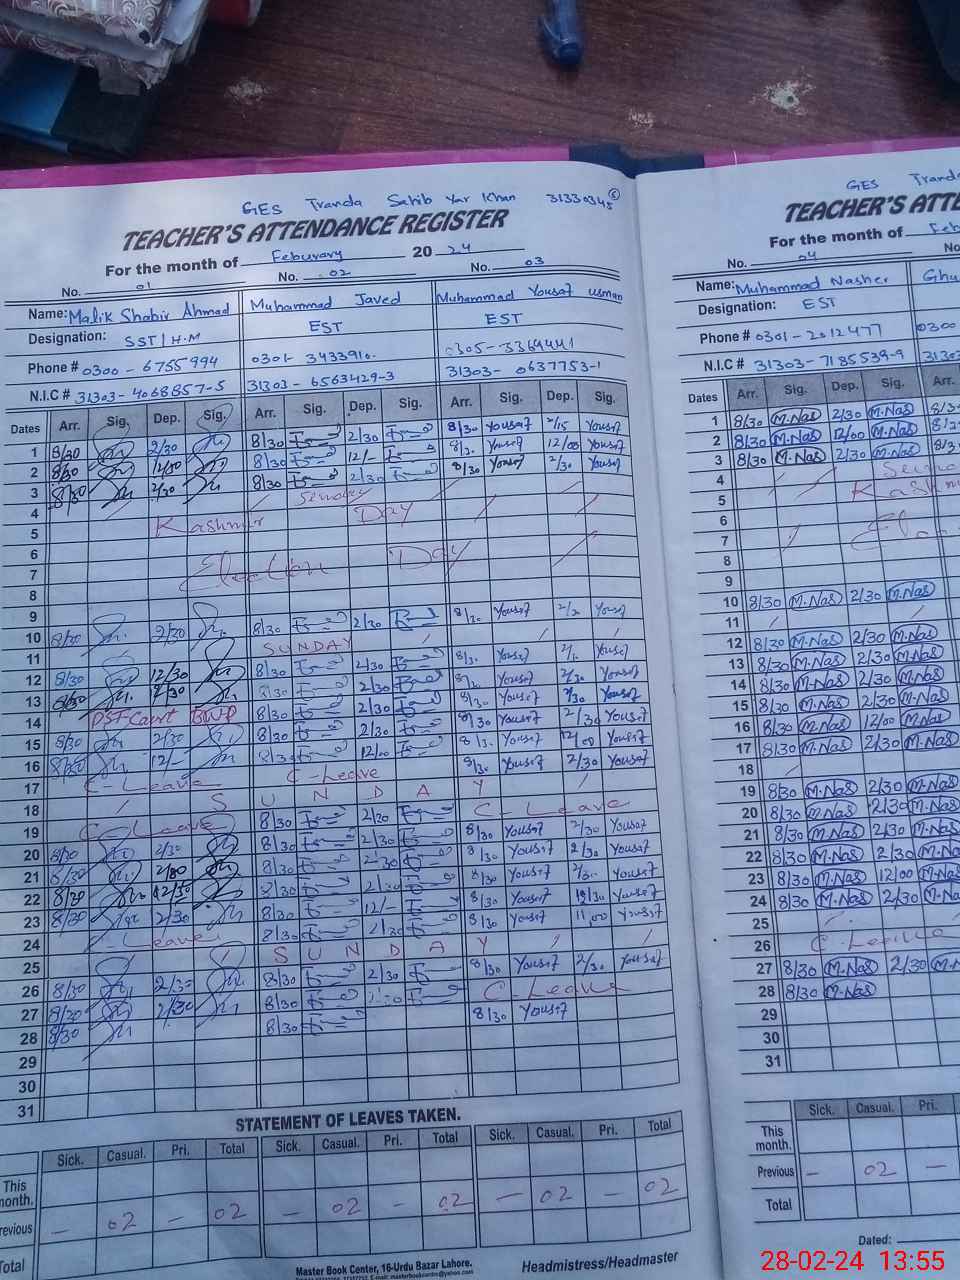 GES Tranda Sahib Yar Khan 31330345
TEACHER'S ATTENDANCE REGISTER
For the month of Feburary 2024
No. 01 No. 02 No. 03
Name: Malik Shabir Ahmad Muhammad Javed Muhammad Yousaf usman
Designation: SST/H.M EST EST
Phone # 0300-6755994 0301-3433910. 0305-3369441
N.I.C # 31303-4068857-5 31303-6563429-3 31303-0637753-1
Dates Arr. Sig. Dep. Sig. Arr. Sig. Dep. Sig. Arr. Sig. Dep. Sig.
1 8/30 2/30 8/30 2/30 8/30 Yousaf 2/15 Yousaf
2 8/30 12/00 8/30 12/- 8/30 Yousaf 12/00 Yousaf
3 8/30 2/30 8/30 2/30 8/30 Yousaf 2/30 Yousaf
4
5 Kashmir Day
6
7 Election Day
8
9
10 8/30 2/30 8/30 2/30 8/30 Yousaf Yousaf
11 SUNDAY
12 8/30 12/30 8/30 2/30 8/30 Yousaf Yousaf
13 8/30 12/30 8/30 2/30 8/30 Yousaf 2/30 Yousaf
14 8/30 2/30 8/30 Yousaf 2/30 Yousaf
15 8/30 2/30 8/30 2/30 8/30 Yousaf 2/30 Yousaf
16 8/30 12/- 8/30 12/00 8/30 Yousaf 12/00 Yousaf
17 C-Leave C-Leave 8/30 Yousaf 2/30 Yousaf
18 SUNDAY
19 C Leave 8/30 2/30 C Leave
20 8/30 2/30 8/30 2/30 8/30 Yousaf 2/30 Yousaf
21 8/30 8/30 2/30 8/30 Yousaf 2/30 Yousaf
22 8/30 8/30 2/30 8/30 Yousaf Yousaf
23 8/30 2/30 8/30 12/- 8/30 Yousaf 12/30 Yousaf
24 C-Leave 8/30 2/30 8/30 Yousaf 11,00 Yousaf
25 SUNDAY
26 8/30 2/30 8/30 2/30 8/30 Yousaf 2/30 Yousaf
27 8/30 2/30 8/30 C-Leave
28 8/30 8/30 8/30 Yousaf
29
30
31
STATEMENT OF LEAVES TAKEN.
Sick. Casual. Pri. Total Sick. Casual. Pri. Total Sick. Casual. Pri. Total
This month.
Previous - 02 - 02 - 02 - 02 - 02 - 02
Total
Master Book Center, 16-Urdu Bazar Lahore.
Headmistress/Headmaster
GES Trand
TEACHER'S ATTE
For the month of Feb
No. 04
Name: Muhammad Nasher Ghu
Designation: EST
Phone # 0301-2012477 0300
N.I.C # 31303-7185539-9 3130
Dates Arr. Sig. Dep. Sig. Arr.
1 8/30 M.Nas 2/30 M.Nas
2 8/30 M.Nas 12/00 M.Nas
3 8/30 M.Nas 2/30 M.Nas
4
5 Kashm
6
7
8
9
10 8/30 M.Nas 2/30 M.Nas
11
12 8/30 M.Nas 2/30 M.Nas
13 8/30 M.Nas 2/30 M.Nas
14 8/30 M.Nas 2/30 M.Nas
15 8/30 M.Nas 2/30 M.Nas
16 8/30 M.Nas 12/00 M.Nas
17 8/30 M.Nas 2/30 M.Nas
18
19 8/30 M.Nas 2/30 M.Nas
20 8/30 M.Nas 2/30 M.Nas
21 8/30 M.Nas 2/30 M.Nas
22 8/30 M.Nas 2/30 M.Na
23 8/30 M.Nas 12/00 M.Na
24 8/30 M.Nas 2/30 M.Na
25
26 C-Leave
27 8/30 M.Nas 2/30 M.N
28 8/30 M.Nas
29
30
31
Sick. Casual. Pri.
This month.
Previous - 02 -
Total
Dated:
28-02-24 13:55